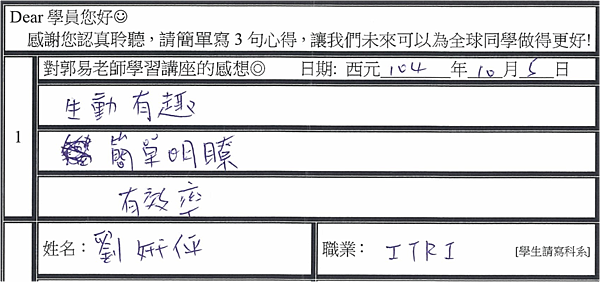 Dear 學員您好☺
感謝您認真聆聽，請簡單寫 3 句心得，讓我們未來可以為全球同學做得更好!
對郭易老師學習講座的感想◎ 日期: 西元 104 年 10 月 5 日
1
生動有趣
簡單明瞭
有效率
姓名： 劉 職業： ITRI [學生請寫科系]